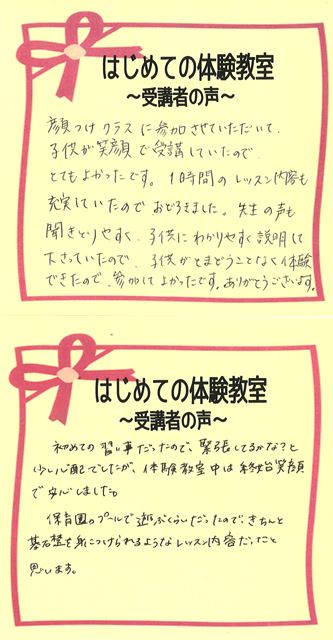 はじめての体験教室
～受講者の声～
顔つけクラスに参加させていただいて、
子供が笑顔で受講していたので
とてもよかったです。1時間のレッスン内容も
充実していたのでおどろきました。先生の声も
聞きとりやすく、子供にわかりやすく説明して
下さっていたので、子供がとまどうことなく体験
できたので、参加してよかったです。ありがとうございます。
はじめての体験教室
～受講者の声～
初めての習い事だったので、緊張してるかな?と
少し心配でしたが、体験教室中は終始笑顔
で安心しました。
保育園のプールで遊ぶくらいだったので、きちんと
基礎を身につけられるようなレッスン内容だったと
思います。